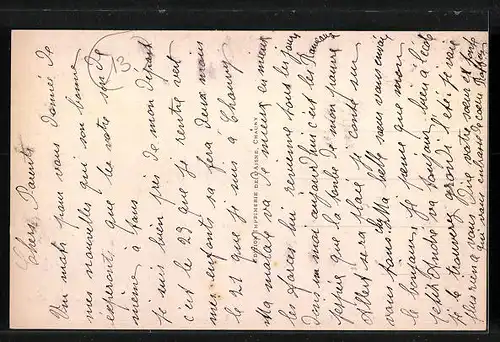 Chers Parents
Un mots pour vous donner de
mes nouvelles qui son bonne
esperont que les votre son de
meme à tous
je suis bien près de mon départ
c'est le 29 que je rentre vers
mes enfants sa fera deux mois
le 21 que je suis à Chauny
Ma malade va de mieux en mieux
les forces lui revienne tous les jours
Dans un mois aujourd'hui c'est les Rameaux
j'espère que la tombe de mon pauvre
Albert sera placé je compte sur
vous tous Ma belle sœur vous envoie
le bonjour, je pense que mon
petit André va toujours bien à l'école
je le trouverez grandi
plus rien a vous dire votre sœur et
qui vous embrasse de cœur
13
EDITION IMPRIMERIE DE CHAUNY